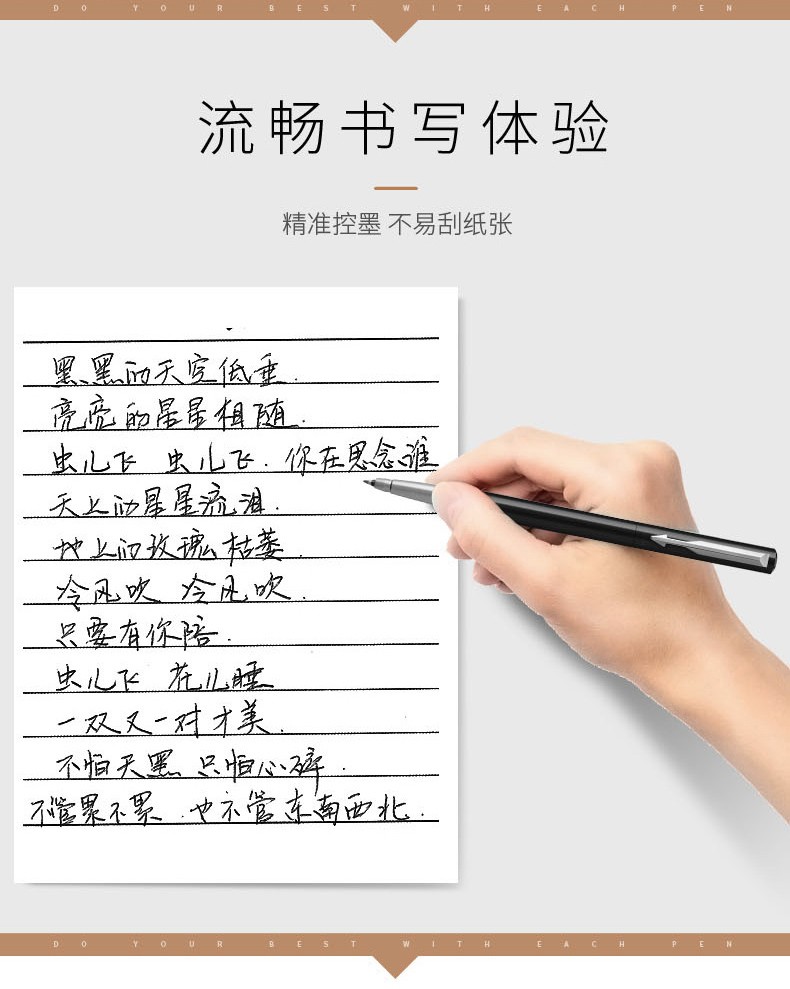 DO YOUR BEST WITH EACH PEN
流畅书写体验
精准控墨 不易刮纸张
黑黑的天空低垂.
亮亮的星星相随.
虫儿飞 虫儿飞.你在思念谁
天上的星星流泪.
地上的玫瑰枯萎.
冷风吹 冷风吹.
只要有你陪.
虫儿飞 花儿睡
一双又一对才美.
不怕天黑 只怕心碎.
不管累不累.也不管东南西北.
DO YOUR BEST WITH EACH PEN